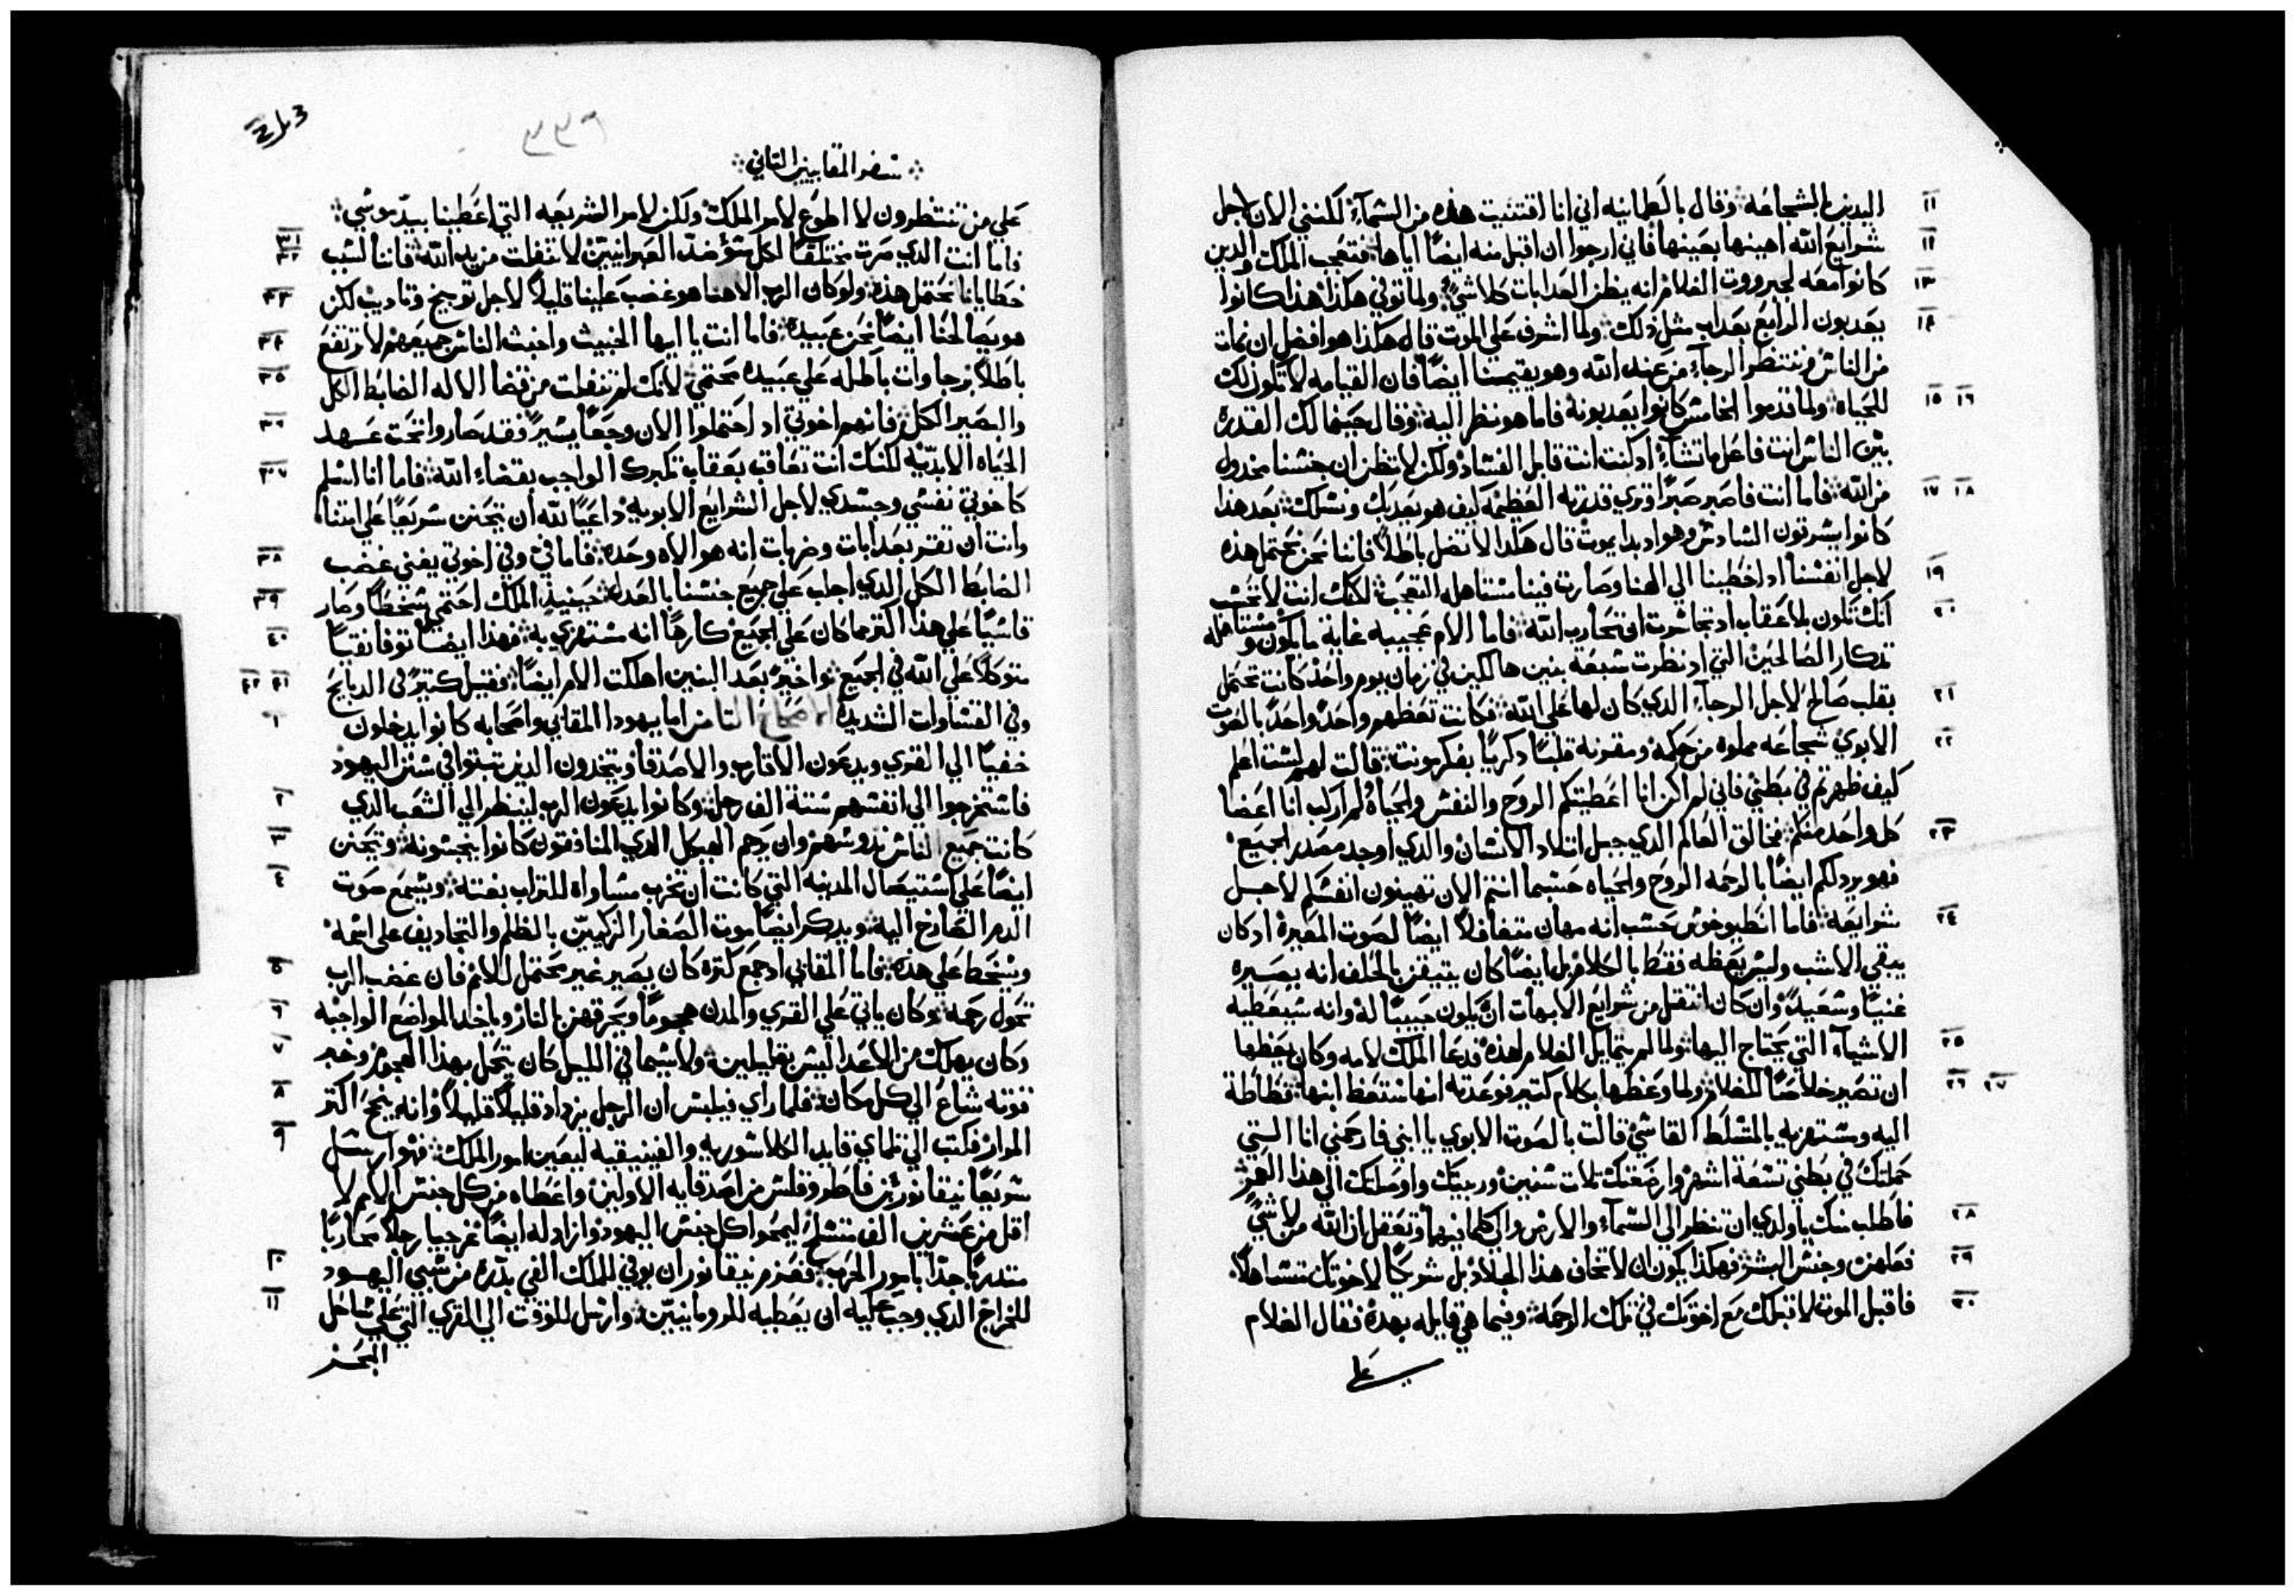 ١١ اليدين بالشجاعة وقال بالطمانينه اني انا اقتنيت هذه من السماء لكنني الان لاجل
١٢ شرايع الله اهينها بعينها فاني ارجوا ان اقبل منه ايضًا اياها فتعجب الملك والدين
١٣ كانوا معه لجبرووت الغلام انه يظن العدابات كلا شي ولما توفي هكذا هذا كانوا
١٤ يعدبون الرابع بعداب مثل ذلك ولما اشرف على الموت قال هكذا هو افضل ان نمات
من الناس وننتظر الرجاء من عند الله وهو يقيمنا ايضًا فان القيامه لا تكون لك
١٥ ١٦ للحياه ولما قدموا الخامس كانوا يعدبونه فاما هو نظر اليه وقال حينما لك القدرة
بين الناس انت فاعل ما تشاء اد كنت انت قابل الفساد ولكن لا تظن ان جنسنا مخدول
١٧ ١٨ من الله فاما انت فاصبر صبرًا وتري قدرته العظيمة كيف هو يعدبك ونسلك بعد هذا
كانوا يسوقون السادس وهو اد بدا يموت قال هكذا لا تضل باطلًا فاننا نحن نحتمل هذه
١٩ لاجل انفسنا اد اخطينا الي الهنا وصارت فينا مستاهله التعجب لكنك انت لا تحسب
٢٠ انك تكون بلا عقاب اد تجاسرت ان تحارب الله فاما الام عجيبه غاية ما يكون ومستاهله
تدكار الصالحين التي اد نظرت سبعة بنين هالكين في زمان يوم واحد كانت تحتمل
٢١ بقلب صالح لاجل الرجاء الدي كان لها علي الله فكانت تعظهم واحدًا واحدًا بالصوت
٢٢ الابوي شجاعه مملوه من حكمة ومقرنه قلبًا دكريًا بفكر مونت قالت لهم لست اعلم
كيف ظهرتم في بطني فاني لم اكن انا اعطيتكم الروح والنفس والحياه لم اركب انا اعضا
٢٣ كل واحد منكم فخالق العالم الدي جبل اتلاد الانسان والدي اوجد مصدر الجميع
فهو يرد لكم ايضًا بالرحمه الروح والحياه حسبما انتم الان تهينون انفسكم لاجل
٢٤ شرايعه فاما انطيوخوس حسب انه مهان متغافلًا ايضًا لصوت المعيرة اد كان
يبقي الاشب وليس يعظه فقط بالكلام بل ايضًا كان يتيقن بالحلف انه يصيره
غنيًا وسعيدًا وان كان انتقل من شرايع الابهات ان يكون حبيبًا له وانه سيعطيه
٢٥ الاشياء التي يحتاج اليها ولما لم يتمايل الغلام لهذه فدعا الملك لامه وكان يعظها
٢٦ ٢٧ ان تصير خلاصًا للغلام ولما وعظها بكلام كتير فوعدته انها ستعظ ابنها فطاطة
اليه ومستهزيه بالمتسلط القاسي قالت بالصوت الابوي يا ابني فارحمني انا التي
حملتك في بطني تسعة اشهر وارضعتك تلات سنين وربيتك واوصلتك الي هذا العمر
٢٨ فاطلب منك يا ولدي ان تنظر الي السماء والارض والي كلما فيهما وتعقل ان الله من لا شي
٢٩ فعلهن وجنس البشر فهكذا يكون ان لا تخاف هذا الجلاد بل شريكًا لاخوتك متساهلًا
٣٠ فاقبل الموت لاقبلك مع اخوتك في تلك الرحمه وفيما هي قايله بهده فقال الغلام
علي
٣٣٩
سفر المقابيين التاني
علي من تنتظرون لا اطوع لامر الملك ولكن لامر الشريعه التي اعطينا بيد موسي
٣١ ٣٢ فاما انت الدي صرت مختلقًا لكل سؤ ضد العبرانيين لا تفلت من يد الله فاننا لسبب
٣٣ خطايانا نحتمل هذه ولو كان الرب الاهنا هو غضب علينا قليلًا لاجل توبيخ وتاديب لكن
٣٤ هو يصالحنا ايضًا نحن عبيده فاما انت يا ايها الخبيث واخبث الناس جميعهم لا ترتفع
٣٥ باطلًا برجاوات باطله علي عبيده محتمي لانك لم تنفلت من قضا الاله الضابط الكل
٣٦ والبصير الكل فانهم اخوتي اد احتملوا الان وجعًا يسيرًا فقد صاروا تحت عهد
٣٧ الحياه الابديه لكنك انت تعاقب بعقاب تكبرك الواجب بقضاء الله فاما انا اسلم
كاخوتي نفسي وجسدي لاجل الشرايع الابويه داعيًا لله ان يتحنن سريعًا علي امتنا
٣٨ وانت ان تقر بعدابات وضربات انه هو الاه وحده فاما في وفي اخوتي يفني غضب
٣٩ الضابط الكل الدي اجلب علي جميع جنسنا بالعدل حينيد الملك احتمي سخطًا وصار
٤٠ قاسيًا علي هذا اكتر مما كان علي الجميع كارهًا انه مستهزي به فهذا ايضًا توفا نقيًا
٤١ ٤٢ متوكلًا علي الله في الجميع واخيرًا بعد البنين اهلكت الام ايضًا فقيل كتيرًا في الدبايح
١ وفي القساوات الشديده الاصحاح التامن اما يهودا المقابي واصحابه كانوا يدخلون
خفيًا الي القري ويدعون الاقارب والاصدقا ويتخدون الدين تبتوا في سنن اليهود
٢ فاستخرجوا الي انفسهم ستة الف رجل وكانوا يدعون الرب لينظر الي الشعب الدي
٣ كانت جميع الناس تدوسهم وان يرحم الهيكل الدي المنافقون كانوا ينجسونه ويتحنن
٤ ايضًا علي استيصال المدينه التي كانت ان تخرب مساواه للتراب بغتة ويسمع صوت
الدم الصارخ اليه ويدكر ايضًا موت الصغار الزكيين بالظلم والتجاديف علي اسمه
٥ ويسخط علي هده فاما المقابي اد جمع كترة كان يصير غير محتمل للامم فان غضب الرب
٦ تحول رحمه وكان ياتي علي القري والمدن هجومًا ويحرقهن بالنار وياخد المواضع الواجبه
٧ وكان يهلك من الاعدا ليس بقليلين ولاسيما في الليل كان يتحل بهدا الهجوم وخبر
٨ قوته شاع الي كل مكان فلما راي فيلبس ان الرجل يزداد قليلًا قليلًا وانه ينجح اكتر
٩ المرار فكتب الي تلماي قايد الكلاسوريه والفينيقيه ليعين امور الملك فهو ارسل
سريعًا نيقانور بن فاطروقلس من اصدقايه الاولين واعطاه من كل جنس الامم لا
اقل من عشرين الف متسلح ليمحوا كل جنس اليهود وازاد له ايضًا غرجيا رجلًا محاربًا
١٠ متدبرًا جدًا بامور الحرب فعزم نيقانور ان يوفي للملك الفي بدرة من سبي اليهود
١١ للخراج الدي وجب عليه ان يعطيه للرومانيين وارسل للوقت الي القري التي علي ساحل
البحر